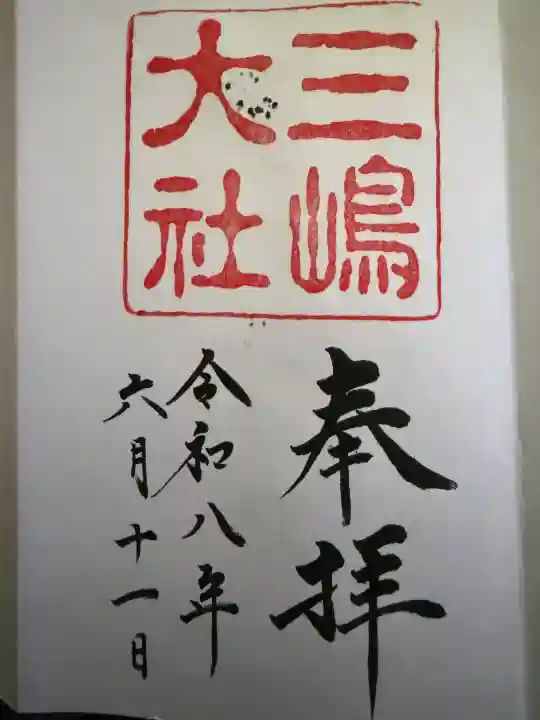 三嶋
大社
奉拝
令和八年
六月十一日